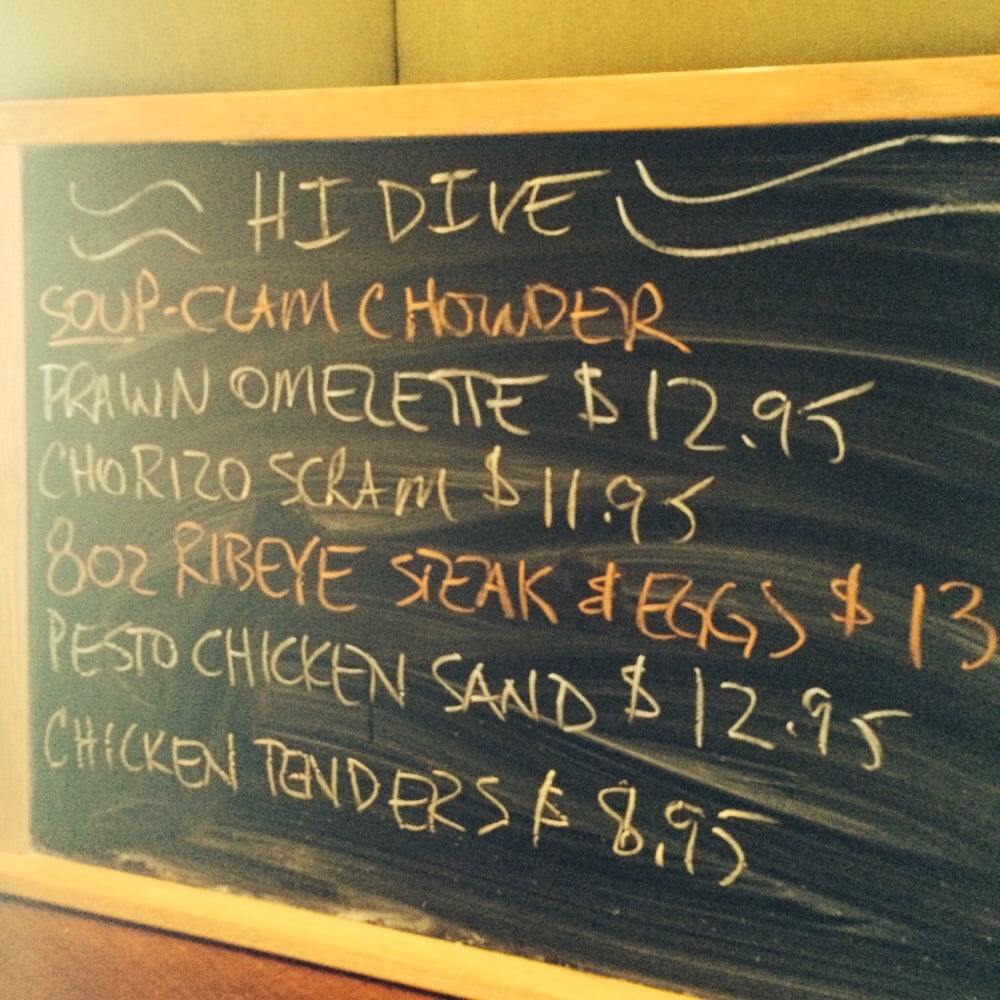 HI DIVE
SOUP-CLAM CHOWDER
PRAWN OMELETTE $12.95
CHORIZO SCRAM $11.95
8OZ RIBEYE STEAK & EGGS $13
PESTO CHICKEN SAND $12.95
CHICKEN TENDERS $8.95